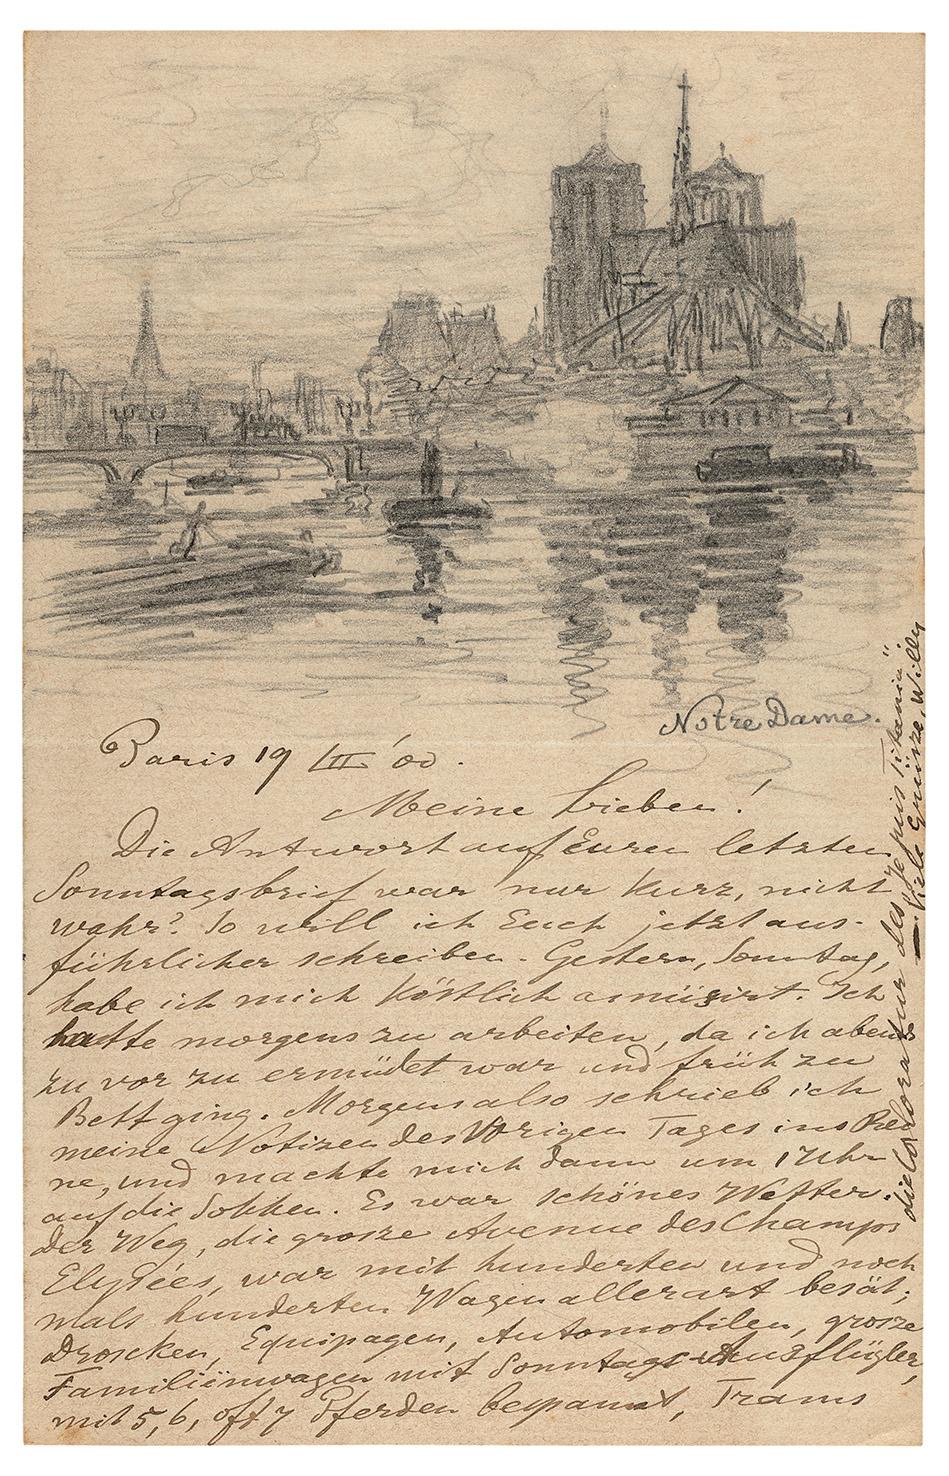 Notre Dame.
Paris 19 III '00.
Meine Lieben!
Die Antwort auf Euren letzten
Sonntagsbrief war nur kurz, nicht
wahr? So will ich Euch jetzt aus-
führlicher schreiben. Gestern, Sonntag,
habe ich mich köstlich amüsirt. Ich
hatte morgens zu arbeiten, da ich abends
zu vor zu ermüdet war und früh zu
Bett ging. Morgens also schrieb ich
meine Notizen des Vorigen Tages ins Rei
ne, und machte mich dann um 1 Uhr
auf die Sokken. Es war schönes Wetter.
Der Weg, die grosze Avenue des Champs
Elysées, war mit hunderten und noch
mals hunderten Wagen allerart besät;
Droscken, Equipagen, Automobilen, grosze
Familiënwagen mit Sonntags-Ausflügler,
mit 5, 6, oft 7 Pferden bespannt, Trams
die Coloratur des "Je suis Titania"
Viele Grüsze, Willy